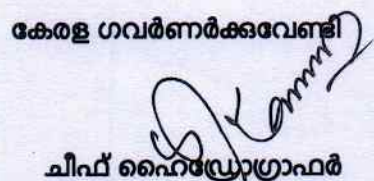 കേരള ഗവർണർക്കുവേണ്ടി
ചീഫ് ഹൈഡ്രോഗ്രാഫർ